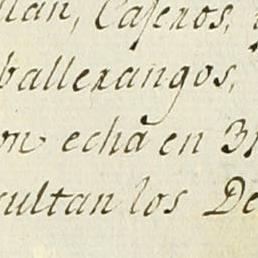 llan, Caseros,
ballerangos,
on echa en 31
cultan los De